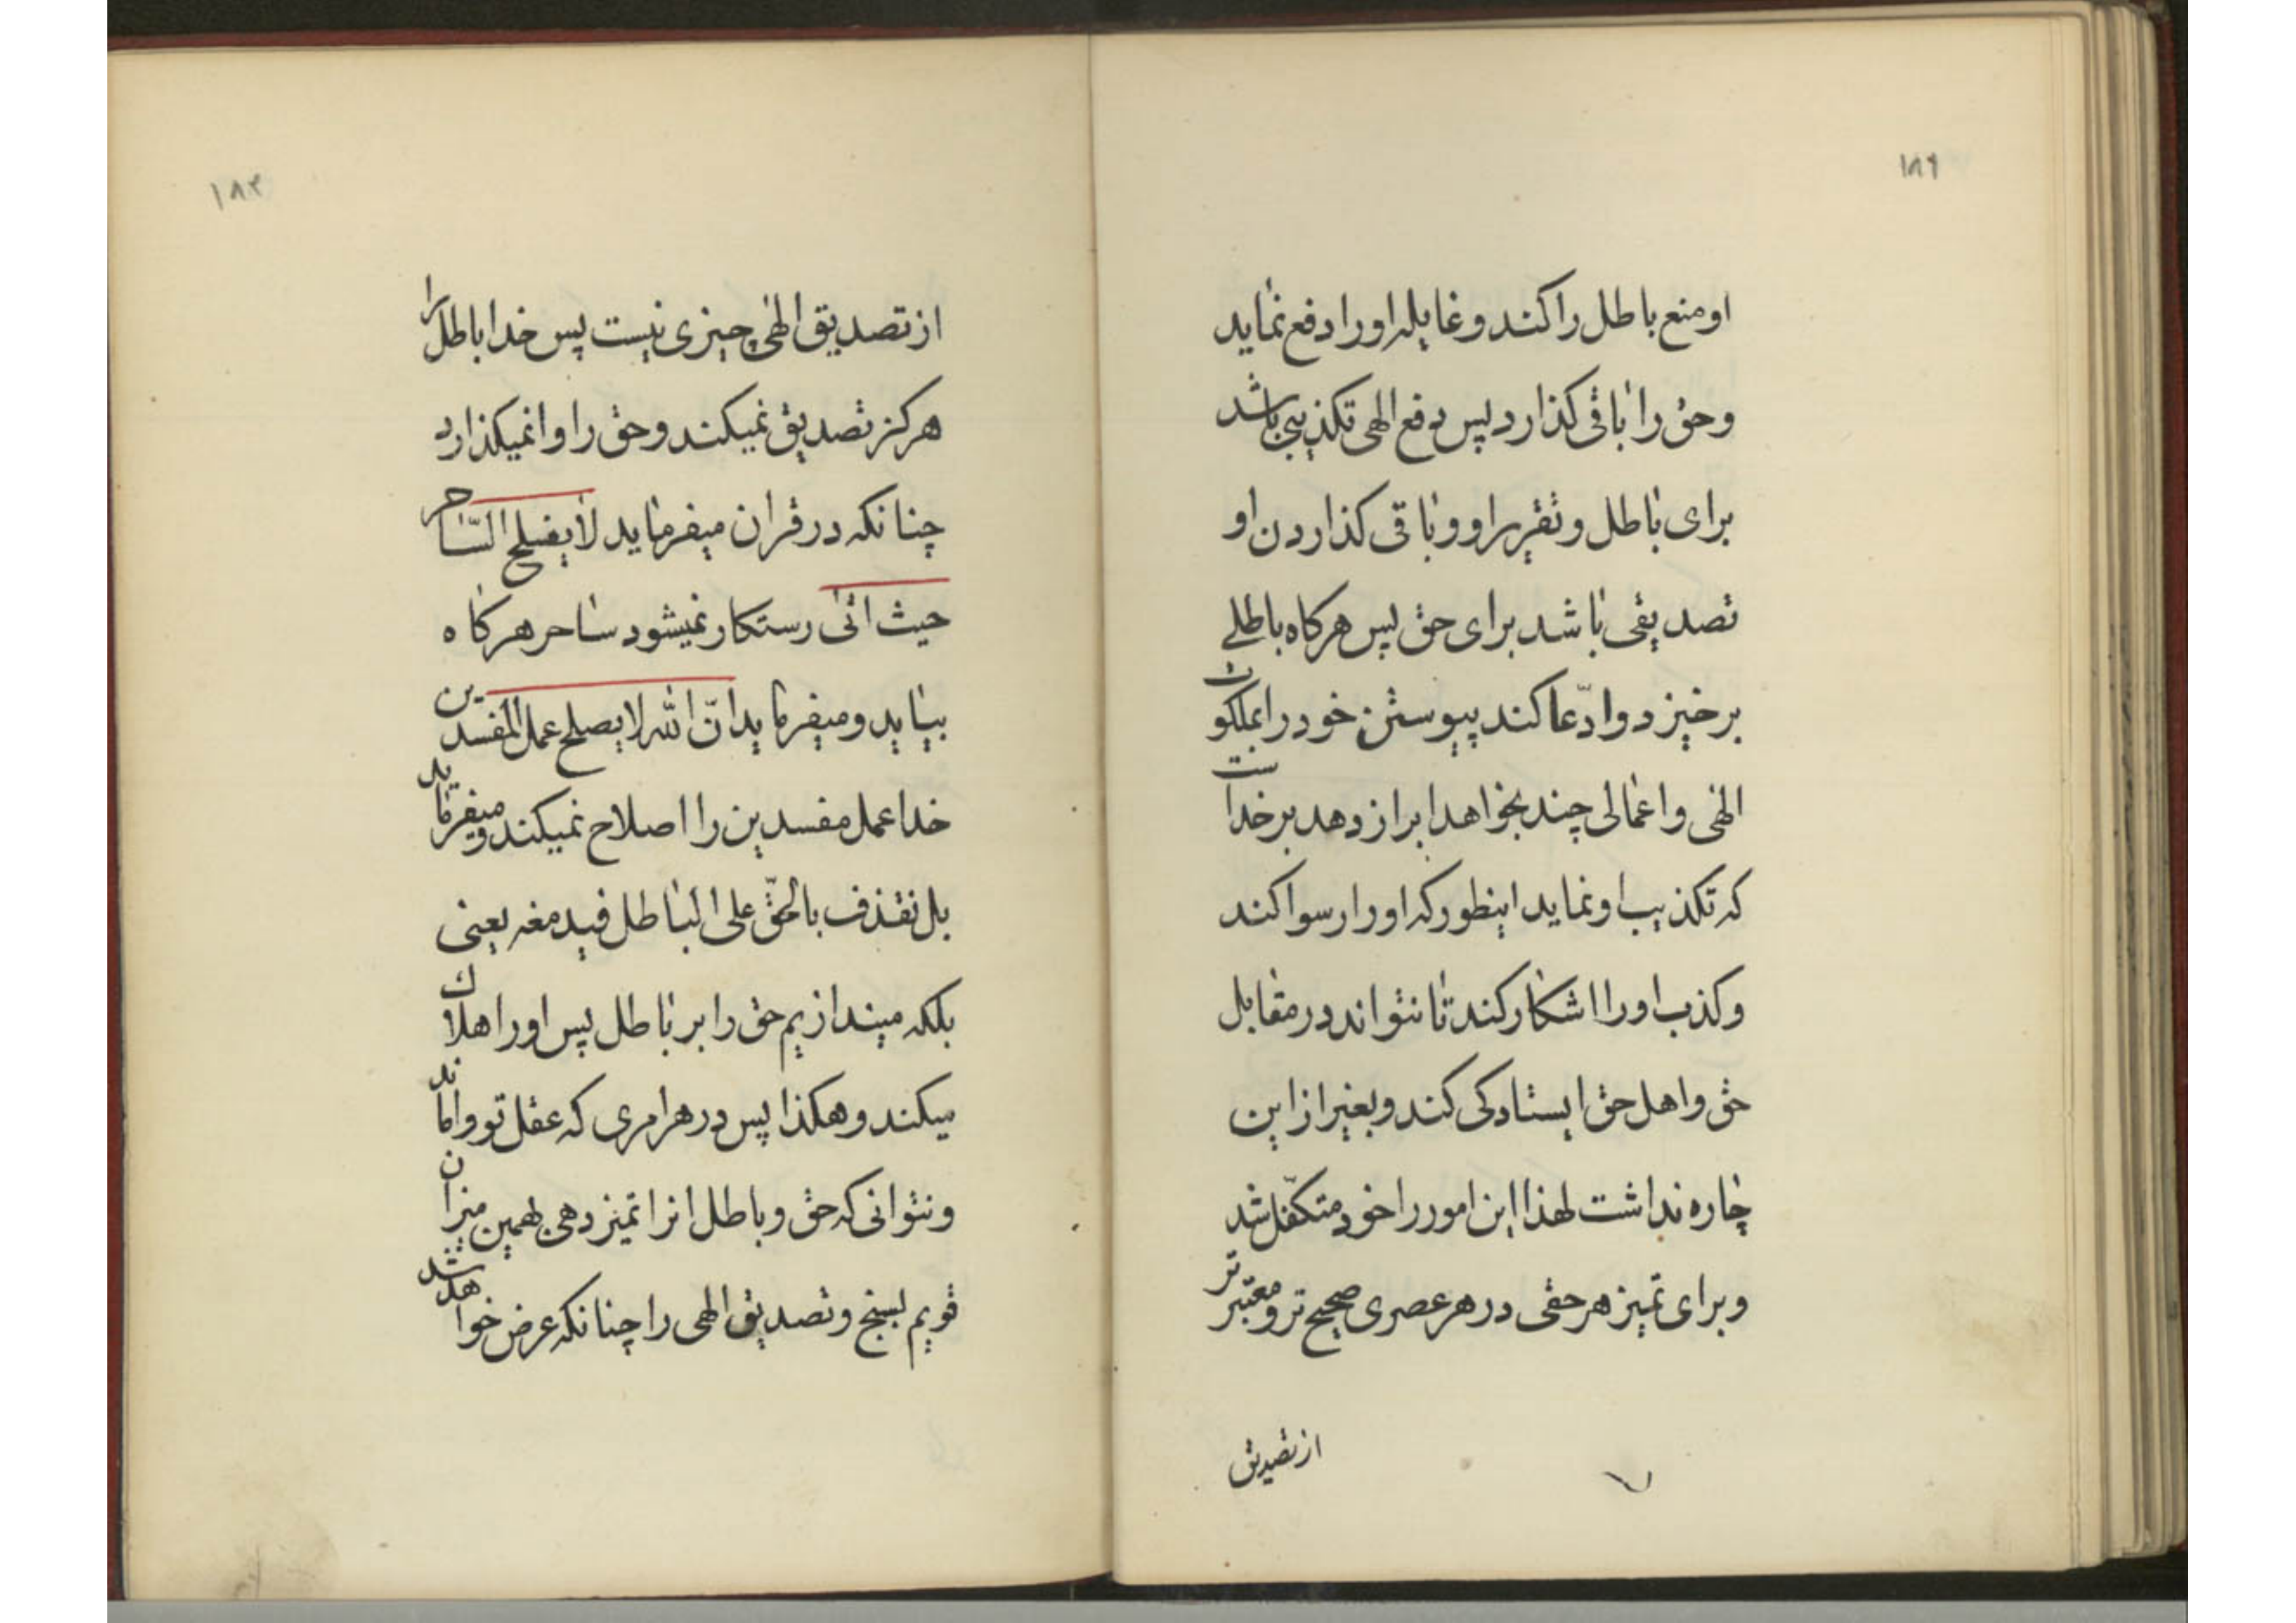 ۱۸۲
او منع باطل را کند و غایله او را دفع نماید
و حق را باقی کذارد پس دفع الهی تکذیبی باشد
برای باطل و تقریر او و باقی کذاردن او
تصدیقی باشد برای حق پس هرکاه باطلے
برخیزد و ادّعا کند پیوستن خود را بملکوت
الهی و اعمالی چند بخواهد ابراز دهد بر خداست
که تکذیب او نماید اینطور که او را رسوا کند
و کذب او را اشکار کند تا نتواند در مقابل
حق و اهل حق ایستادکی کند و بغیر از این
چاره نداشت لهذا این امور را خود متکفّل شد
و برای تمیز هر حقی در هر عصری صحیح تر و معتبر تر
از تصدیق
۱۸۳
از تصدیق الهی چیزی نیست پس خدا باطل را
هرکز تصدیق نمیکند و حق را وانمیکذارد
چنانکه در قران میفرماید لا یفلح السّاحر
حیث اتی رستکار نمیشود ساحر هرکاه
بیاید و میفرماید انّ الله لا یصلح عمل المفسدین
خدا عمل مفسدین را اصلاح نمیکند و میفرماید
بل نقذف بالحقّ علی الباطل فیدمغه یعنی
بلکه میندازیم حق را بر باطل پس او را هلاک
میکند و هکذا پس در هر امری که عقل تو واماند
و نتوانی که حق و باطل انرا تمیز دهی بهمین میزان
قویم بسنج و تصدیق الهی را چنانکه عرض خواهد شد